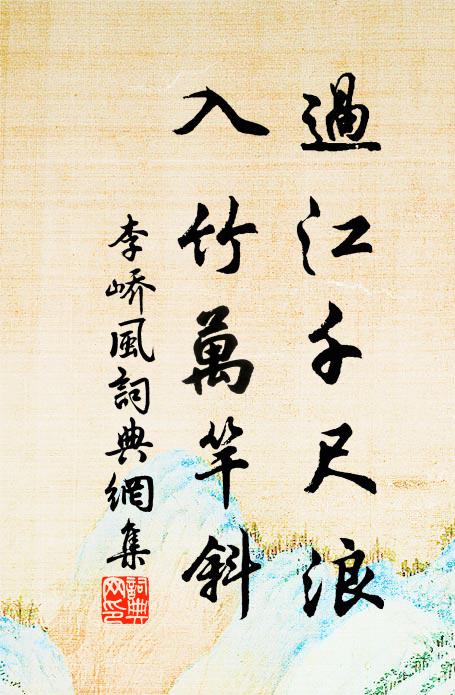 過江千尺浪
入竹萬竿斜
李嶠風詞典網集
詞典網印